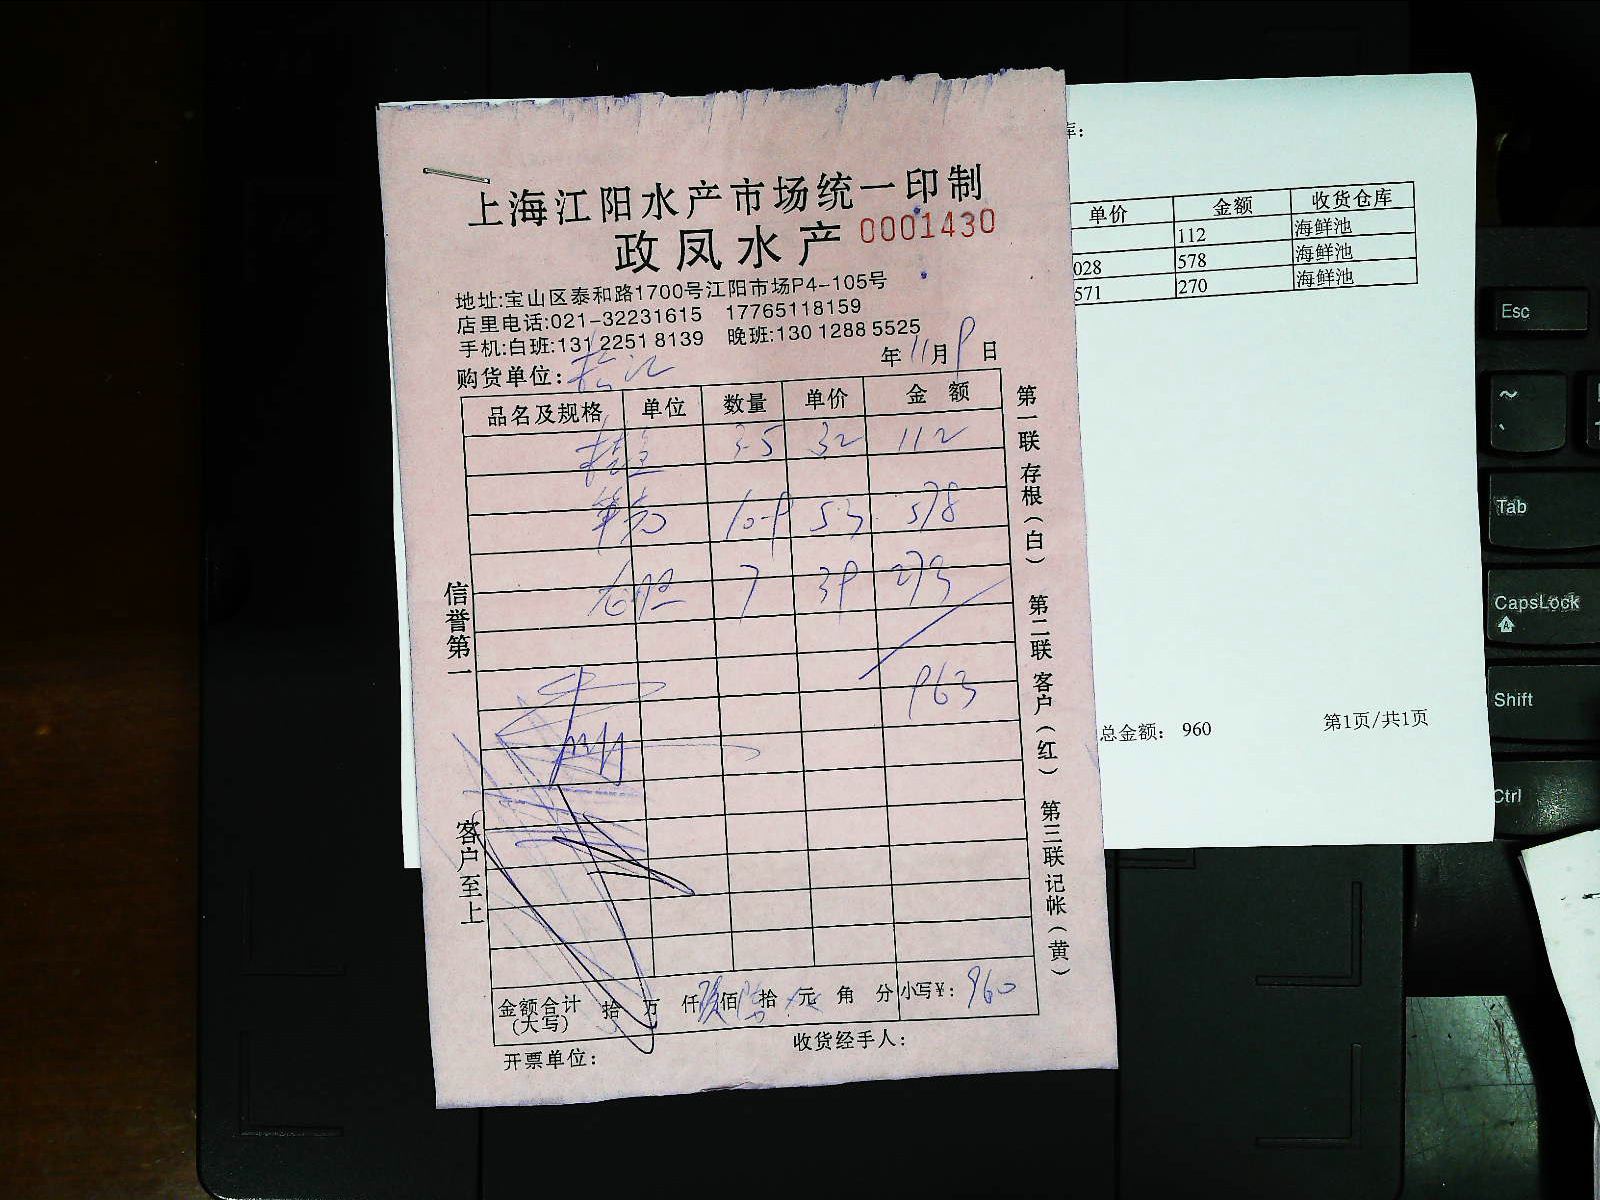 上海江阳水产市场统一印制
政凤水产 0001430
地址:宝山区泰和路1700号江阳市场P4-105号
店里电话:021-32231615 17765118159
手机:白班:131 2251 8139 晚班:130 1288 5525
购货单位: 松江 年 11 月 9 日
品名及规格 单位 数量 单价 金额
3.5 32 112
10.9 53 578
7 39 273
963
金额合计(大写) 拾 万 仟 玖 佰 陆 拾 元 角 分 小写¥: 960
开票单位: 收货经手人:
信誉第一
客户至上
第一联存根(白)
第二联客户(红)
第三联记帐(黄)
库:
单价 金额 收货仓库
112 海鲜池
028 578 海鲜池
571 270 海鲜池
总金额: 960 第1页/共1页
Esc
~
Tab
CapsLock
A
Shift
Ctrl